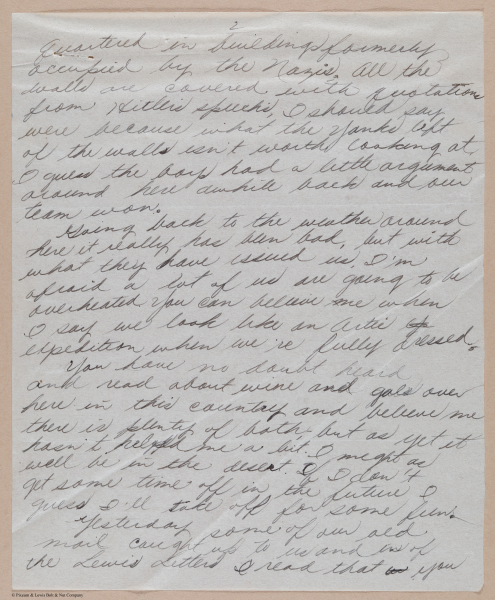 2
Quartered in buildings formerly
occupied by the Nazis. All the
walls are covered with quotations
from Hitlers speechs, I should say
were because what the Yanks left
of the walls isn't worth looking at.
I guess the boys had a little argument
around here awhile back and our
team won.
Going back to the weather around
here it really has been bad, but with
what they have issued us I'm
afraid a lot of us are going to be
overheated. You can believe me when
I say we look like an Artic
expedition when we're fully dressed.
You have no doubt heard
and read about wine and gals over
here in this country and believe me
there is plenty of both, but as yet it
hasn't helped me a bit. I might as
well be in the desert. If I don't
get some time off in the future I
guess I'll take off for some fun.
Yesterday some of our old
mail caught up to us and in of
the Lewis Letters I read that you
© Provan & Lewis Bolt & Nut Company